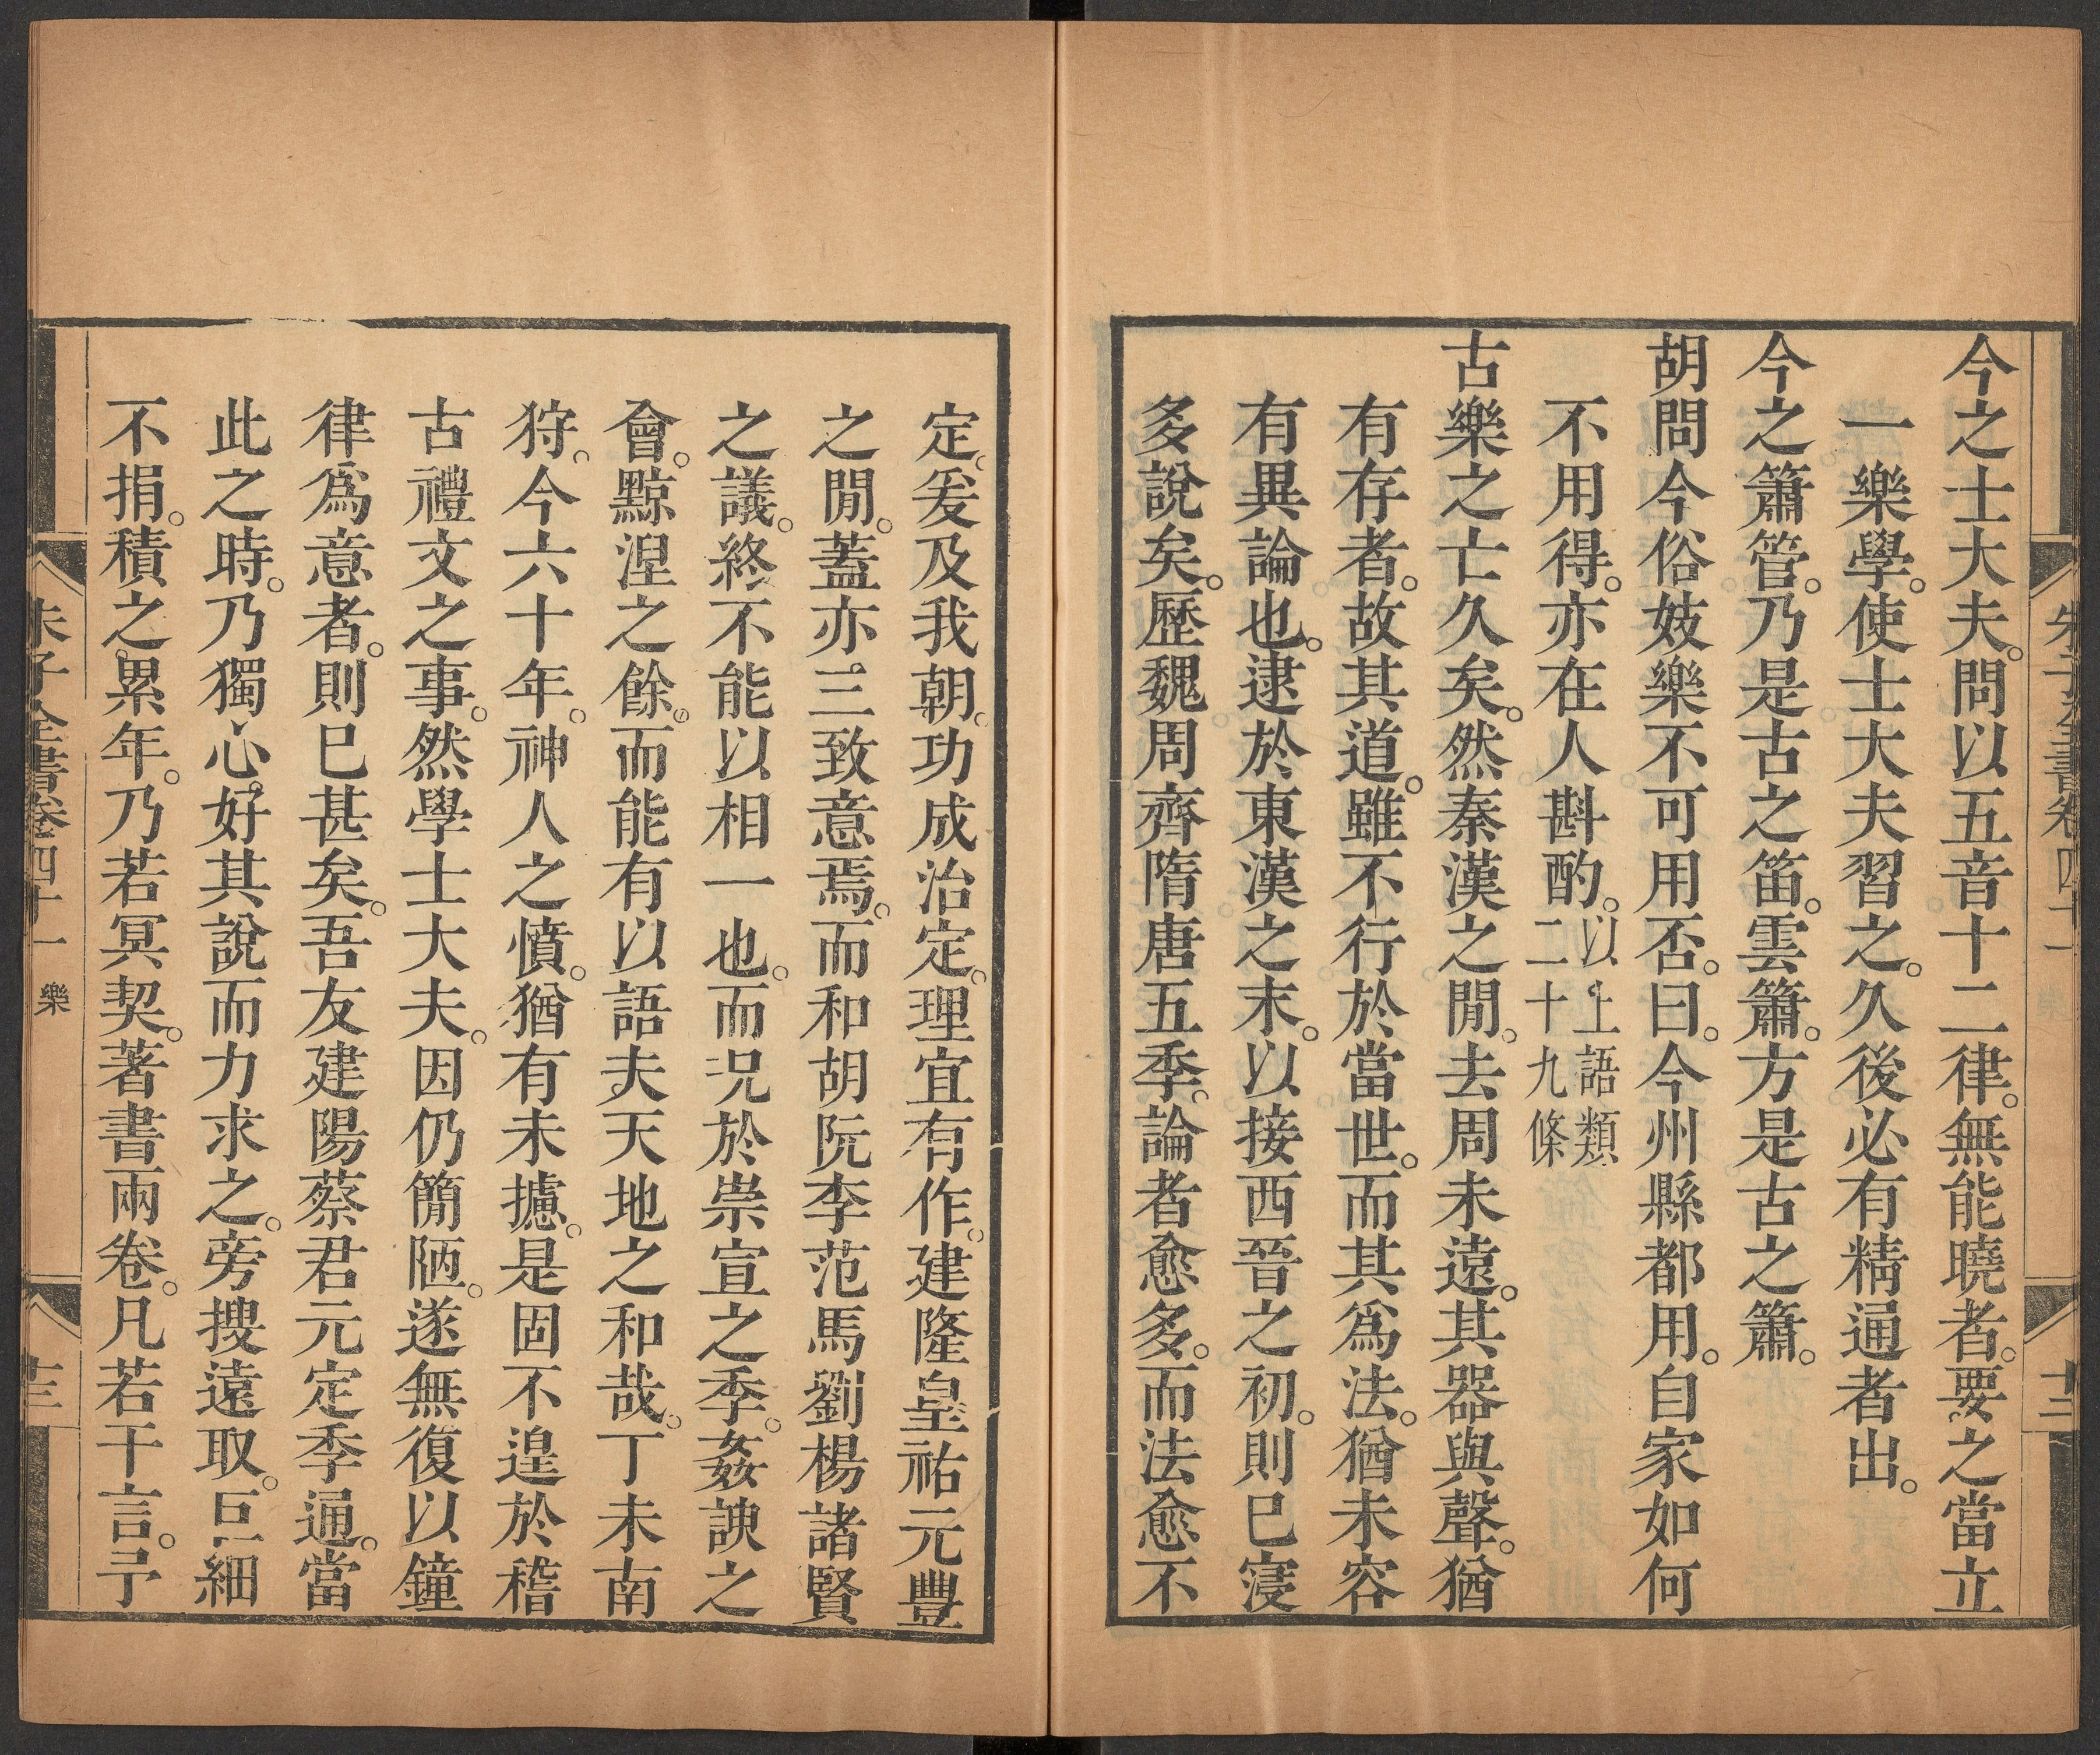 朱子全書卷四十一
十二
今之士大夫。問以五音十二律。無能曉者。要之當立
一樂學。使士大夫習之。久後必有精通者出。
今之簫管。乃是古之笛。雲簫。方是古之簫。
胡問今俗妓樂不可用否。曰。今州縣都用。自家如何
不用得。亦在人斟酌。以上語類
二十九條
古樂之亡久矣。然秦漢之閒。去周未遠。其器與聲。猶
有存者。故其道。雖不行於當世。而其爲法。猶未容
有異論也。逮於東漢之末。以接西晉之初。則已寖
多說矣。歷魏周齊隋唐五季。論者愈多。而法愈不
定。爰及我朝。功成治定。理宜有作。建隆皇祐元豐
之閒。蓋亦三致意焉。而和胡阮李范馬劉楊諸賢
之議。終不能以相一也。而況於崇宣之季。姦諛之
會。黥涅之餘。而能有以語夫天地之和哉。丁未南
狩。今六十年。神人之憤。猶有未攄。是固不遑於稽
古禮文之事。然學士大夫。因仍簡陋。遂無復以鐘
律爲意者。則已甚矣。吾友建陽蔡君元定季通。當
此之時。乃獨心好其說而力求之。旁搜遠取。巨細
不捐。積之累年。乃若冥契。著書兩卷。凡若干言。予
朱子全書卷四十一 樂
十三